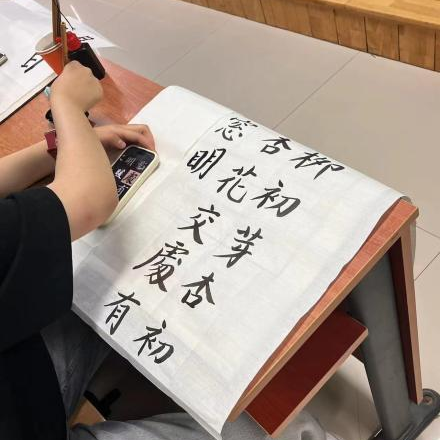 柳初芽杏初
杏花交處有
窓明